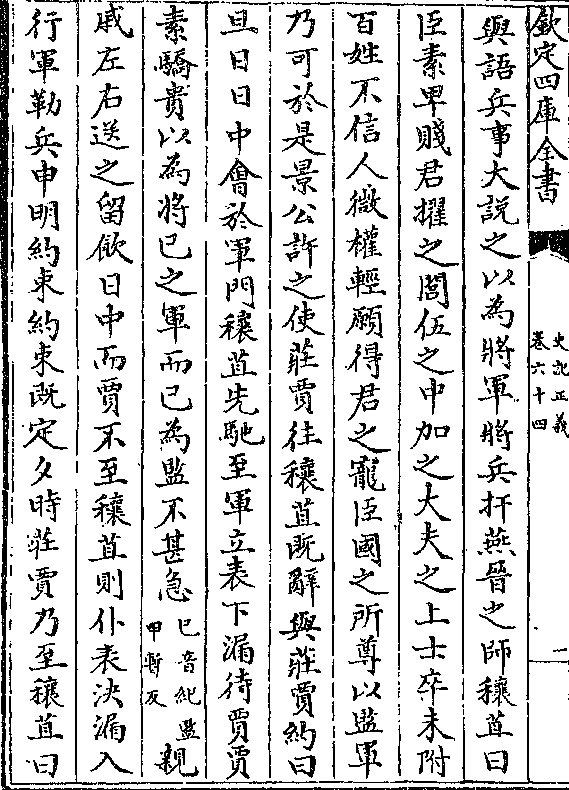 欽定四庫全書
史記正義
卷六十四
一
與語兵事大説之以為將軍將兵扞燕晉之師穰苴曰
臣素卑賤君擢之閭伍之中加之大夫之上士卒未附
百姓不信人微權輕願得君之寵臣國之所尊以監軍
乃可於是景公許之使莊賈往穰苴既辭與莊賈約曰
旦日日中會於軍門穰苴先馳至軍立表下漏待賈賈
素驕貴以為將已之軍而已為監不甚急已音紀監甲暫反親
戚左右送之留飲日中而賈不至穰苴則仆表決漏入
行軍勒兵申明約束約束既定夕時莊賈乃至穰苴曰